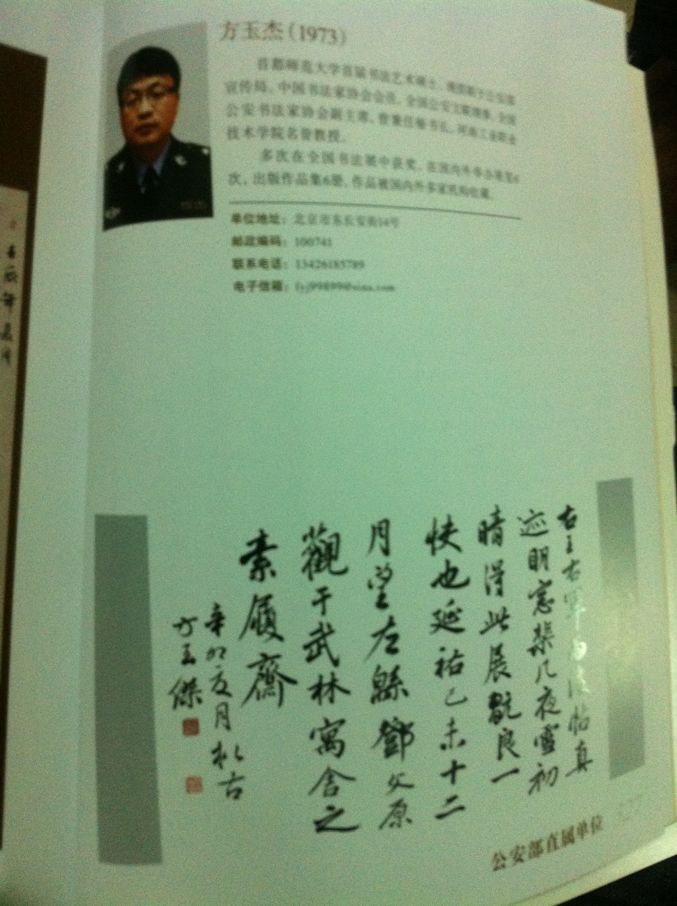 方玉杰(1973)
首都师范大学首届书法艺术硕士，现供职于公安部
宣传局。中国书法家协会会员，全国公安文联理事，全国
公安书法家协会副主席，曾兼任秘书长，河南工业职业
技术学院名誉教授。
多次在全国书法展中获奖，在国内外举办展览6
次，出版作品集6册，作品被国内外多家机构收藏。
单位地址：北京市东长安街14号
邮政编码：100741
联系电话：13426185789
电子信箱：fyj99899@sina.com
右王右军 帖真
迹明窗棐几夜雪初
晴得此展玩良一
快也延祐己未十二
月望左绵鄧文原
觀于武林寓舍之
素履齋
辛卯夏月 古
方玉傑
公安部直属单位